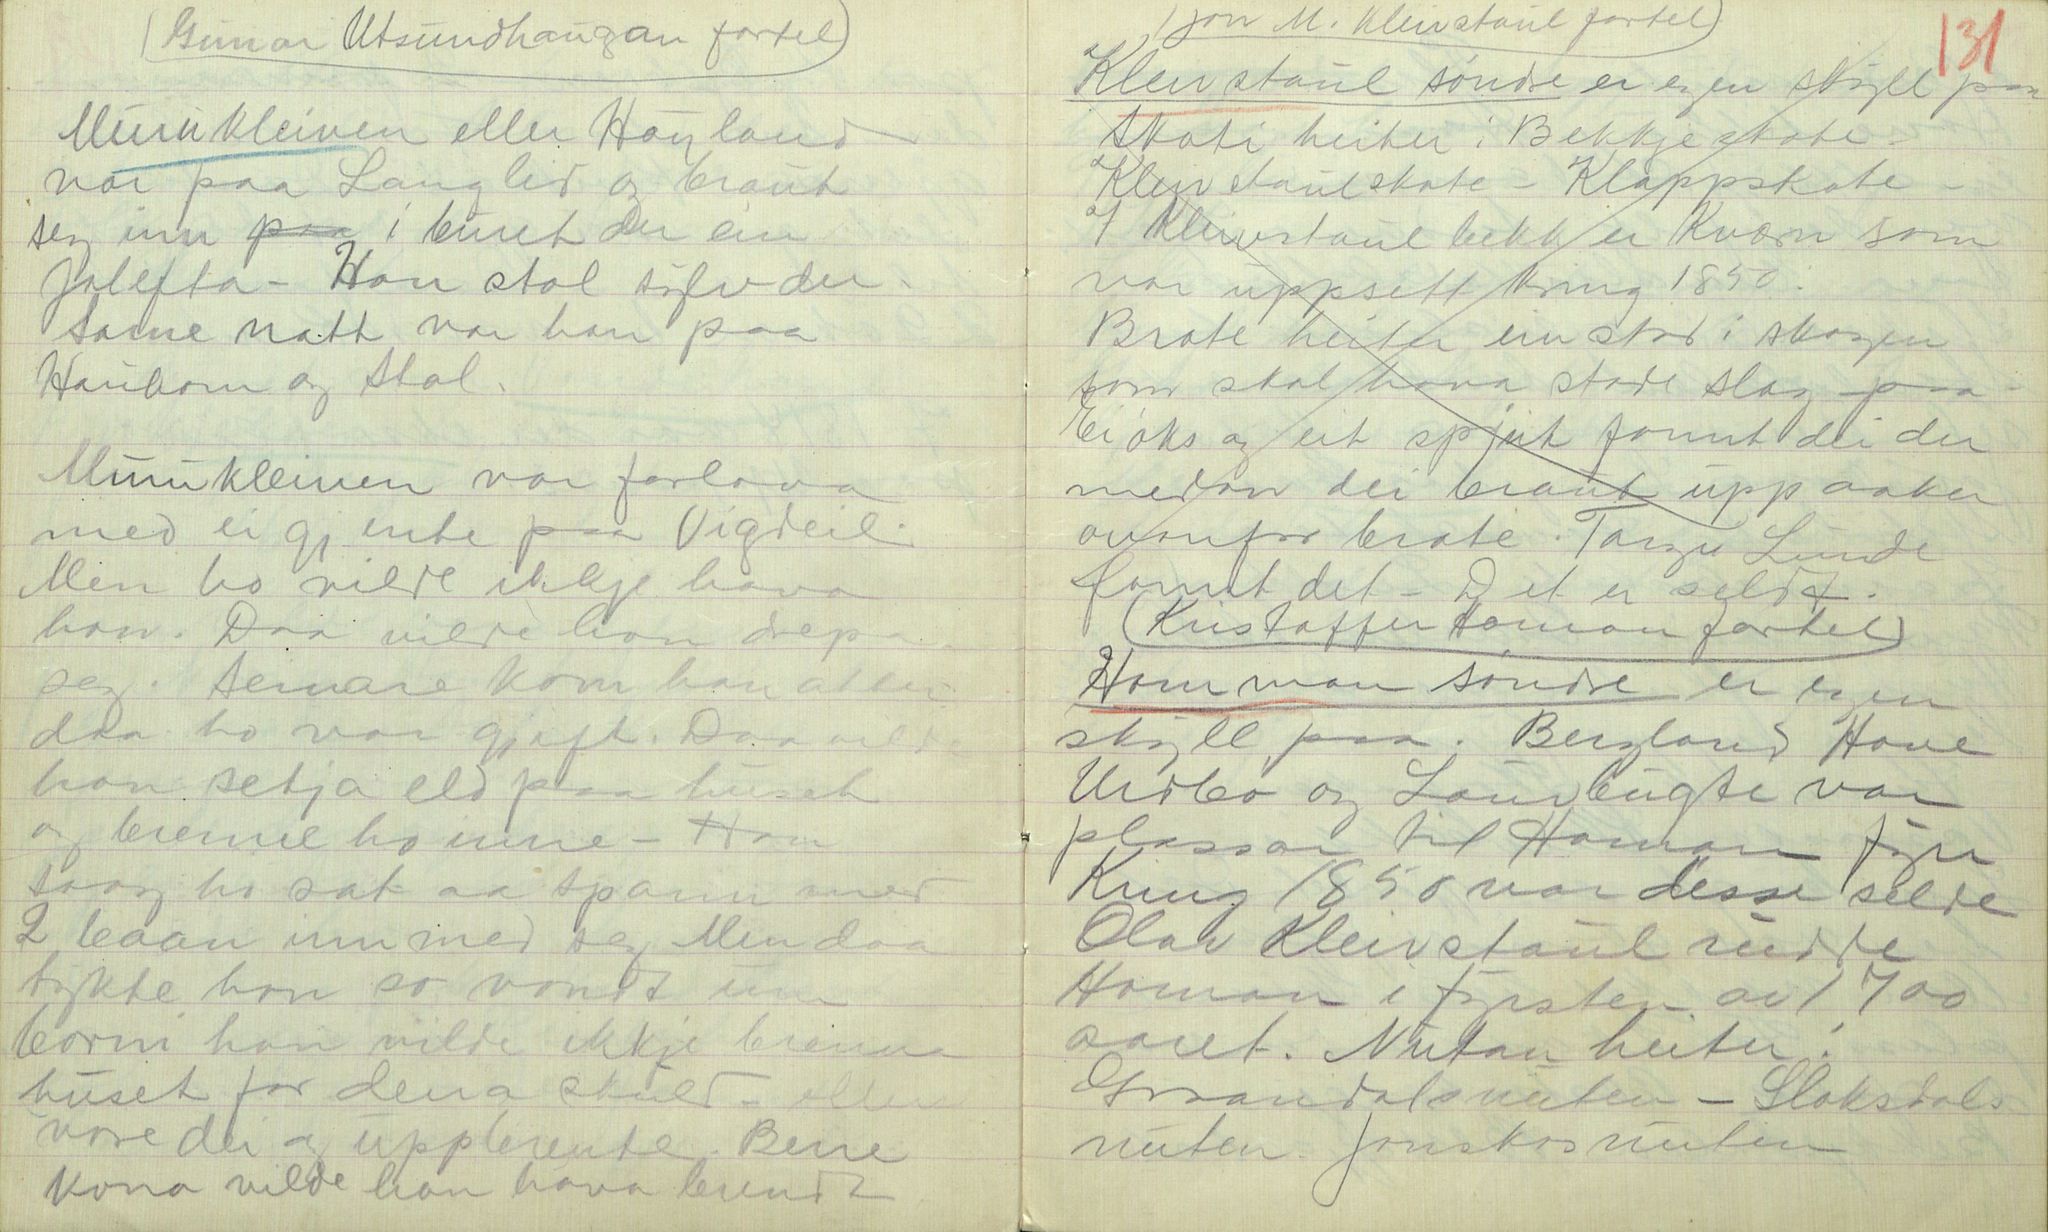 (Gunar Utsundhaugan fortel)
Munukleiven eller Høyland
var paa Langlid og braut
seg inn paa i buret der ein
jolefta - Han stol sylv der.
Same natt var han paa
Haukom og stal.
Munukleiven var forlova
med ei gjente paa Vigdeil.
Men ho vilde ikkje hava
han. Daa vilde han drepa
seg. Senare kom han atter
daa ho var gjift. Daa vilde
han setja eld paa huset
og brenne ho inne - Han
saag ho sat aa spann med
2 baan inn med seg Men daa
tykte han so vondt um
borni han vilde ikkje brenna
huset for dena skuld - elles
vore dei og uppbrente. Berre
kona vilde han hava brendt
131
(Jon M. Kleivstaul fortel)
Kleivstaul søndre er egen skyll paa
Skoti heiter i Bekkjeskote -
Kleivstaulskote - Klappskote -
I Kleivstaulbekk er Kværn som
var uppsett kring 1850.
Brote heiter ein stad i skogen
som skal hava stade slag paa -
Ei øks og eit spjut fonnt dei der
medan dei braut upp aaker
ovanfor brote. Targje Lunde
fonnt det - Det er seldt.
(Kristaffer Homan fortel)
Homman søndre er egen
skyll paa. Bergland Have
Urdbø og Laurbugte var
plassar til Homan fyrr
Kring 1850 var desse selde
Olav Kleivstaul rudde
Homan i fyrsten av 1700
aaret. Nutan heiter:
Graandalsnuten - Sloksdals
nuten. Jonskosnuten